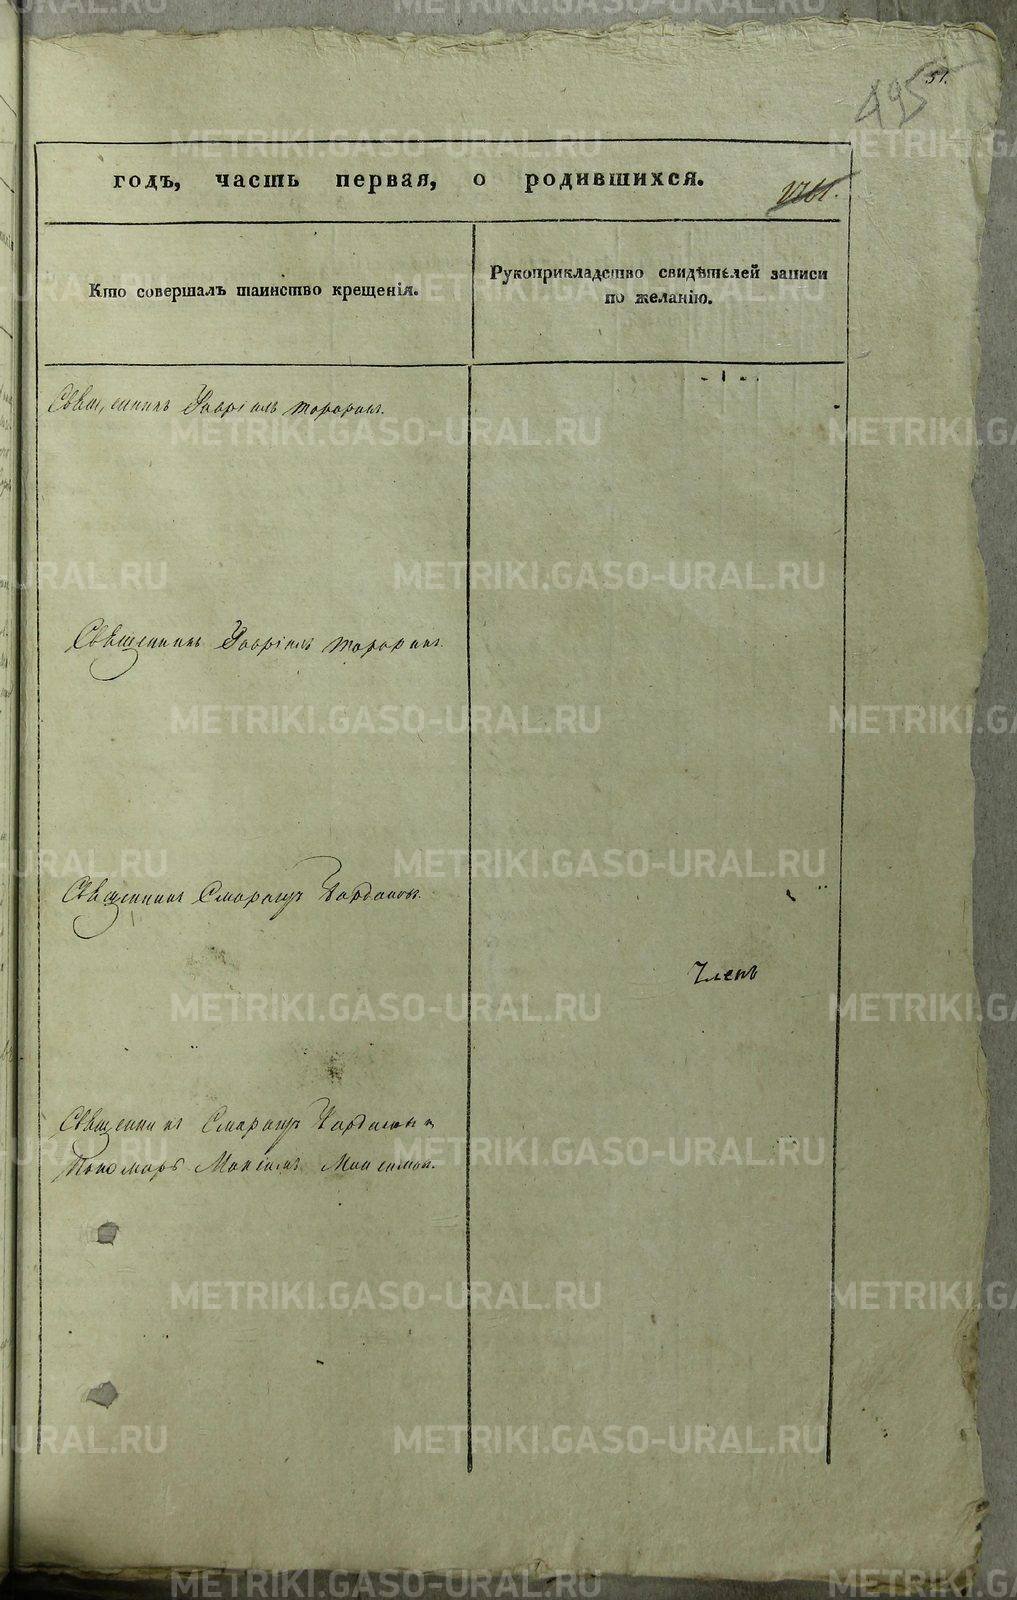 51.
495
годъ, часть первая, о родившихся.
1761.
Кто совершалъ таинство крещенія.
Рукоприкладство свидѣтелей записи
по желанію.
Священникъ Гавріилъ Топоринъ.
Священникъ Гавріилъ Топоринъ.
Священникъ Смарагдъ
Членъ
Священникъ Смарагдъ и
Пономарь Максимъ Максимов.
METRIKI.GASO-URAL.RU